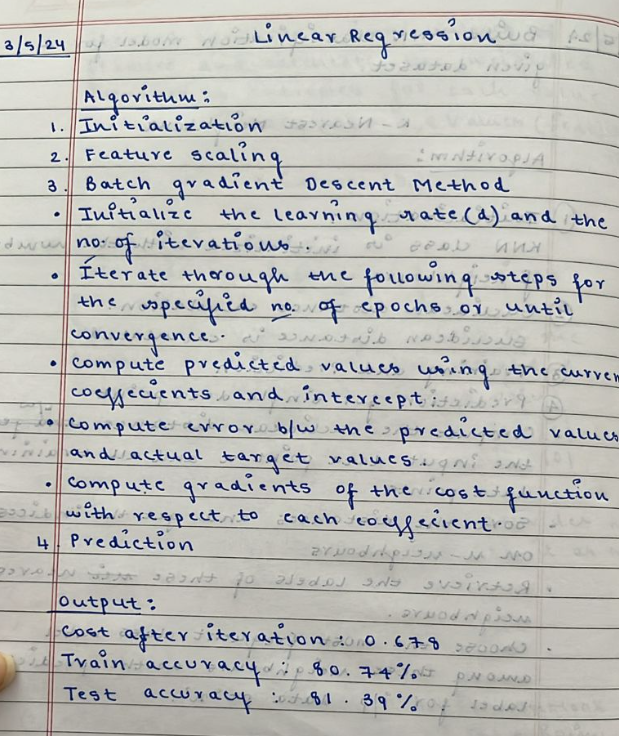 Linear Regression
3/5/24
Algorithm:
1. Initialization
2. Feature scaling
3. Batch gradient Descent Method
• Initialize the learning rate (d) and the
no. of iterations.
• Iterate thorough the following steps for
the specified no. of epochs or until
convergence.
• compute predicted values using the curren
coeffecients and intercept.
• compute error b/w the predicted values
and actual target values.
• compute gradients of the cost function
with respect to each coeffecient.
4. Prediction
Output:
Cost after iteration : 0.678
Train accuracy : 80.74%
Test accuracy : 81.39%